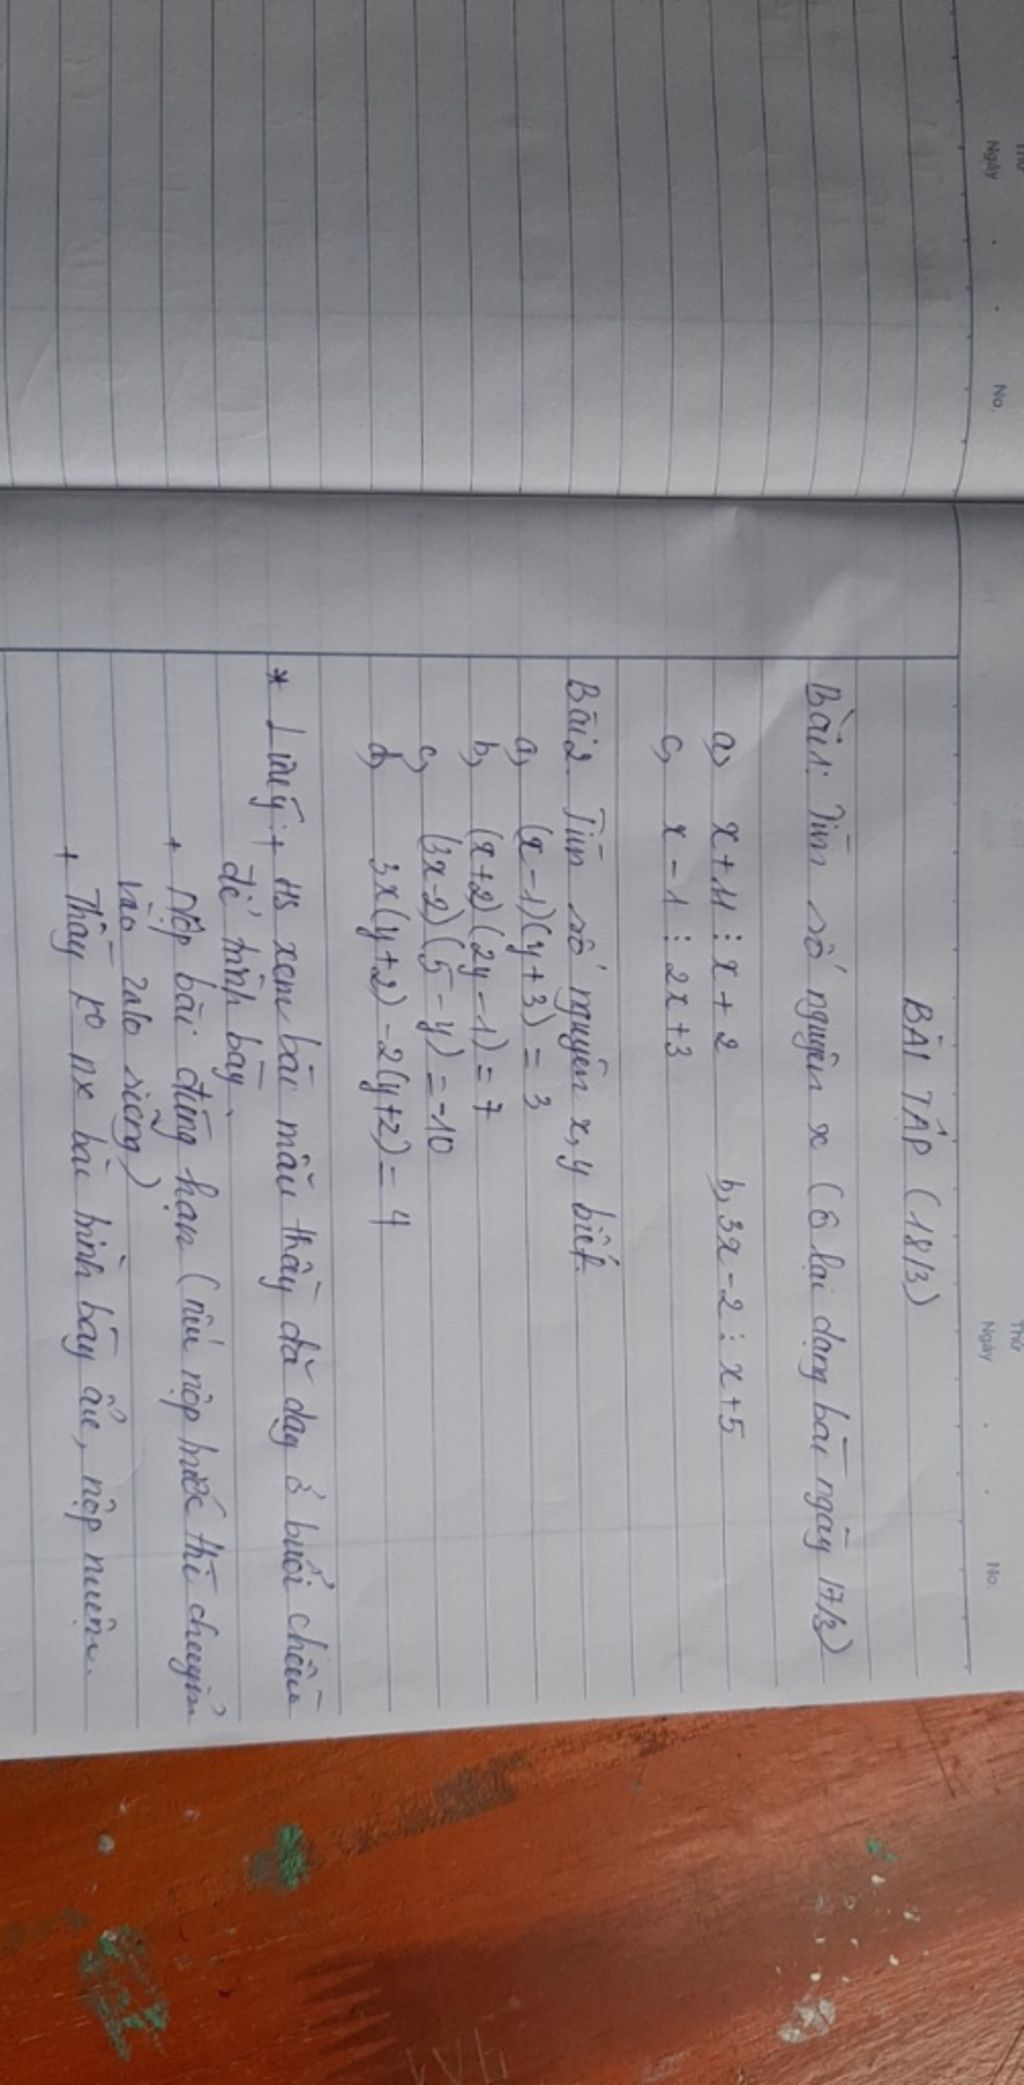 Thứ
Ngày . . No.
Thứ
Ngày . . No.
BÀI TẬP (18/3)
Bài 1: Tìm số nguyên x (Ô lại dạng bài ngày 17/3)
a, x + 11 ⋮ x + 2 b, 3x - 2 ⋮ x + 5
c, x - 1 ⋮ 2x + 3
Bài 2. Tìm số nguyên x, y biết.
a, (x - 1)(y + 3) = 3
b, (x + 2)(2y - 1) = 7
c, (3x - 2)(5 - y) = -10
d, 3x(y + 2) - 2(y + 2) = 4
* Lưu ý: + HS xem bài mẫu thầy đã dạy ở buổi chiều
để trình bày.
+ Nộp bài đúng hạn (nếu nộp trước thì chuyển
vào zalo riêng)
+ Thầy ko nx bài trình bày ẩu, nộp muộn.